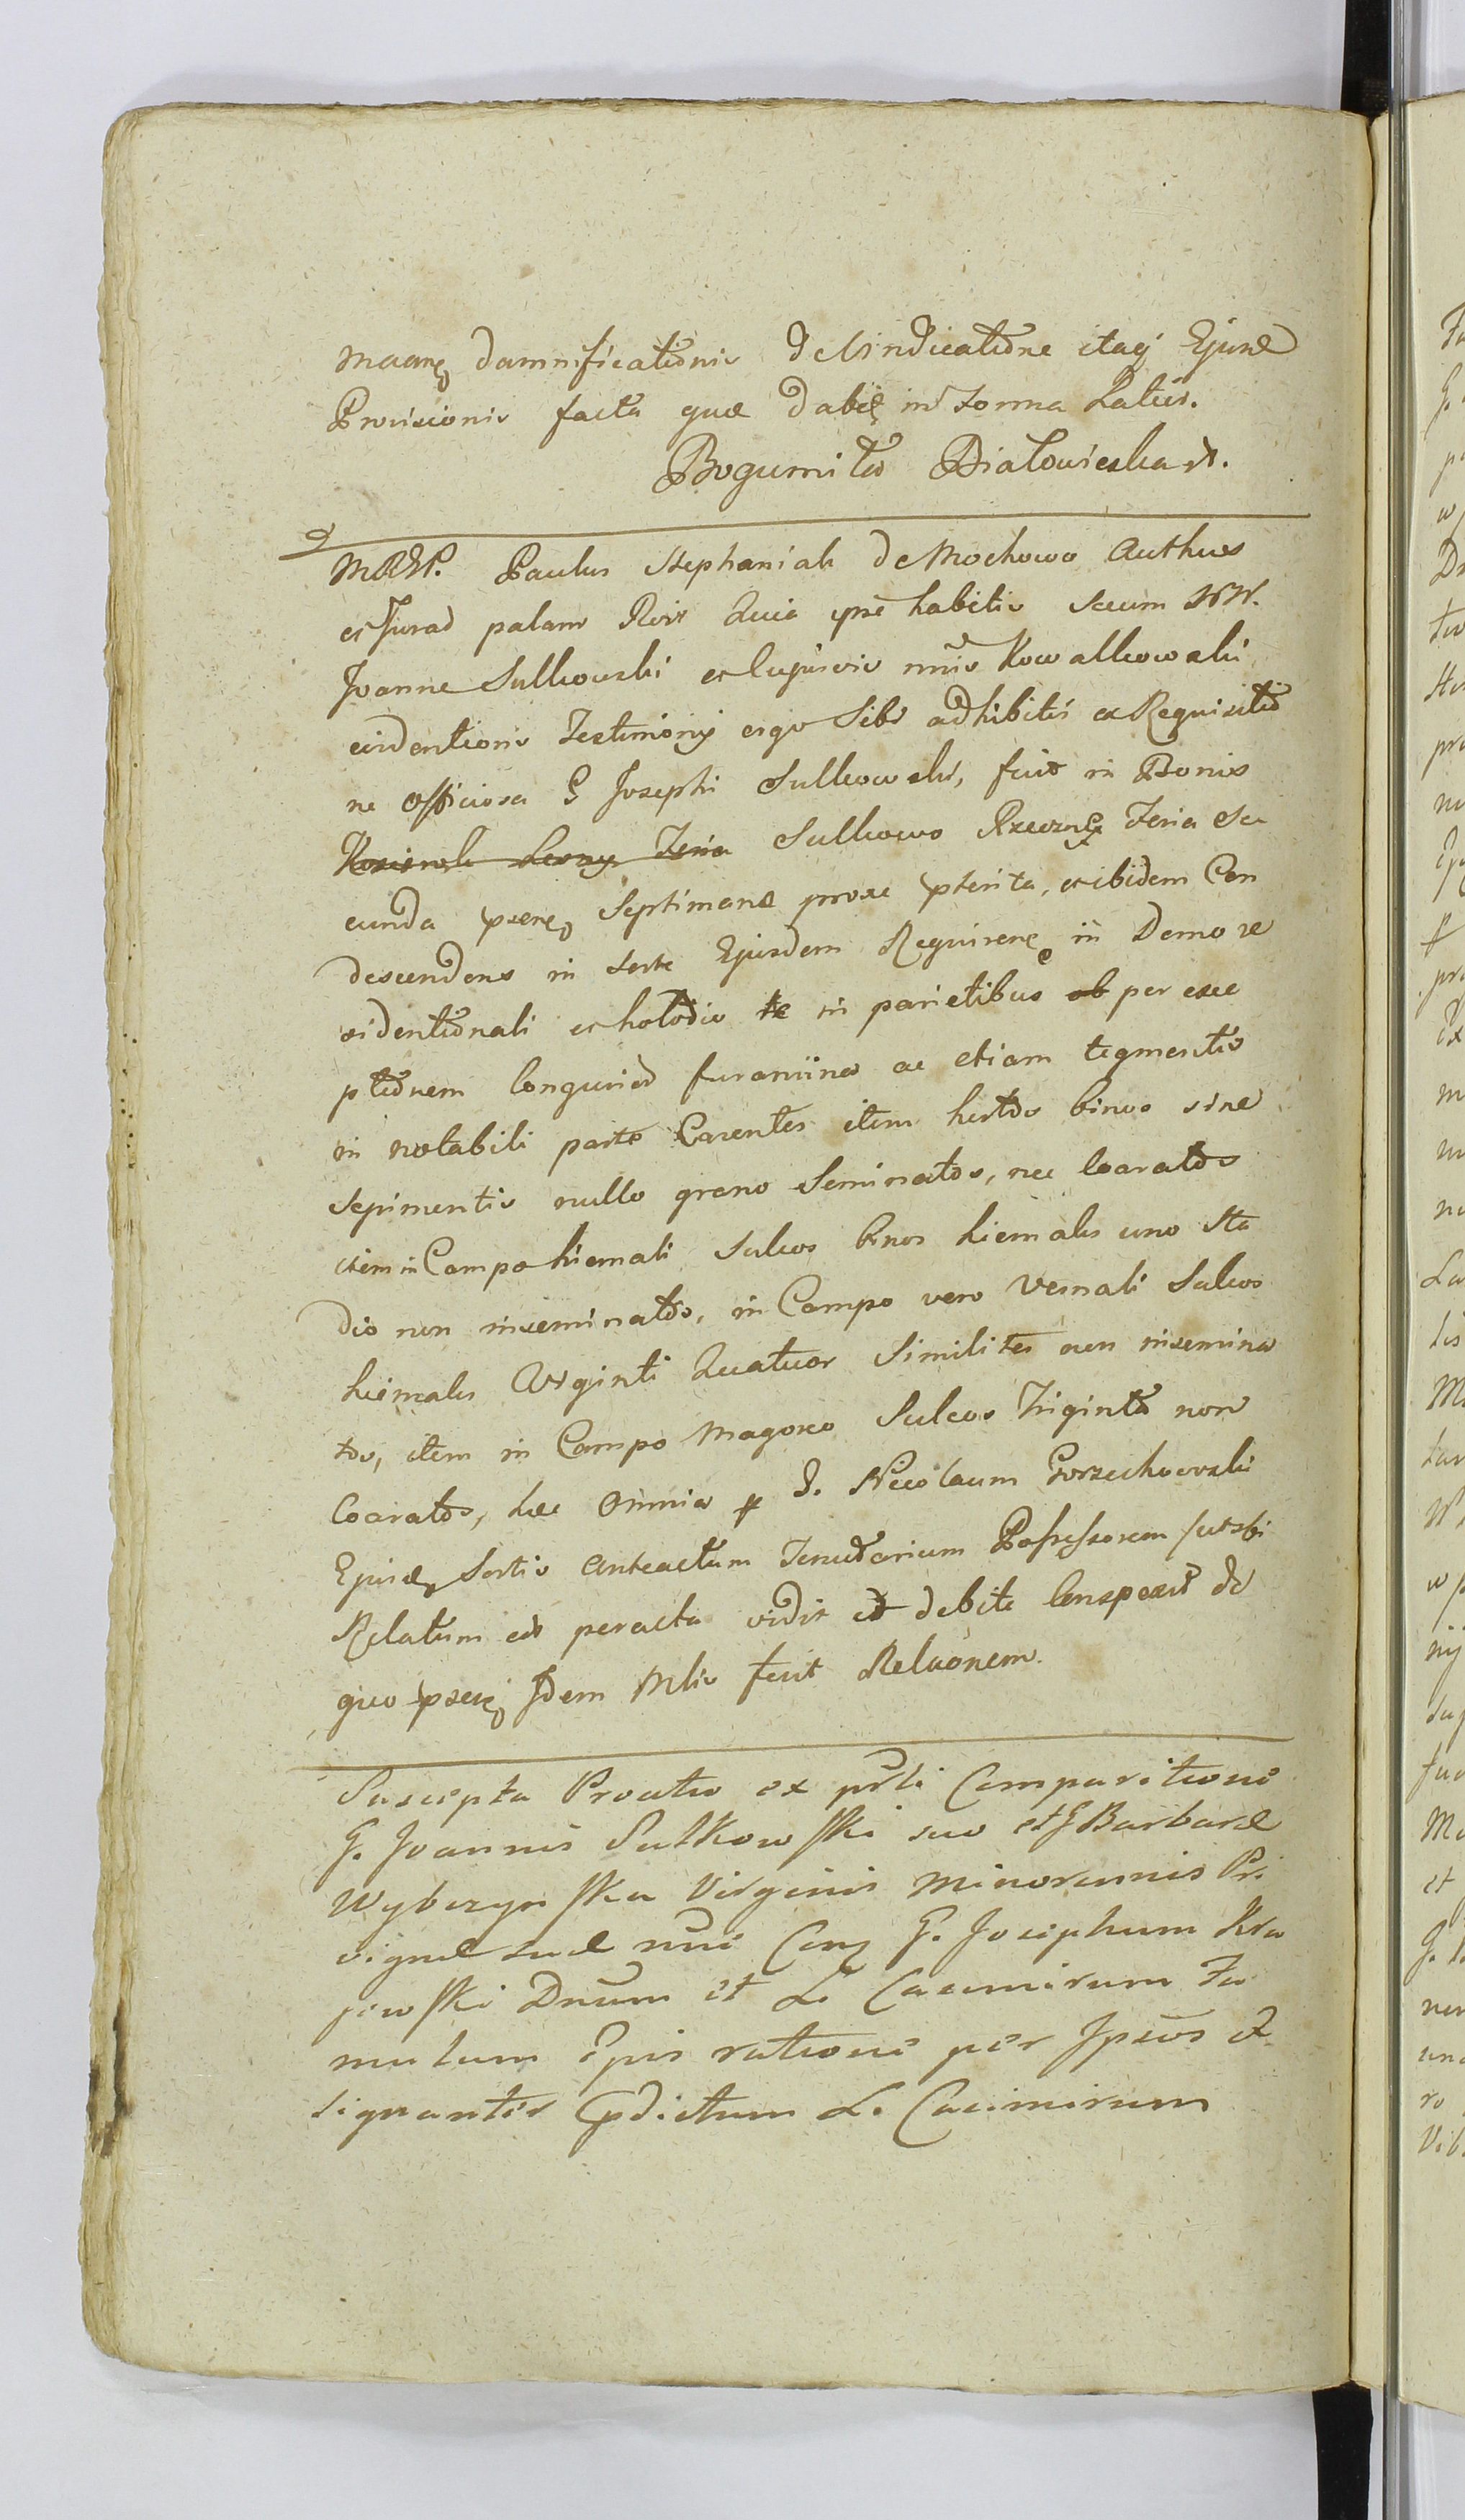 damnificationis de Vindicatione itaq Ejusd
Provisionis facta quæ dabit in forma Latius.
Bogumiła Białowieska
Paulus Stephaniak de Mochowo Authus
et Jurad palam Reit Quia ipse habitis secum NN.
Joanne Sulkowski et nnis Kowalkowski
evidentioris Testimonij ergo Sibi adhibitis ex Requisitio
ne officiosa G Josephi Sulkowski, fuit in Bonis
Sulkowo Rzeczne Feria Se
cunda Septimanæ proxe pterita, et ibidem Con
descendens in sorte Ejusdem Requiren in Domo re
sidentionali et in parietibus ob per exce
ptionem longurior ac etiam tegmentis
in notabili parte Carentes item hortos binos sine
sepimentis nullo grano Seminatos, nec Coaratos
item in Campo hiemali Sulcos binos hiemales uno Sta
dio non inseminatos, in Campo vero Vernali Sulcos
hiemales Viginti Quatuor Similiter non insemina
tos, item in Campo Sulcos Triginta non
Coaratos, hæc Omnia p G. Nicolaum Gorzechowski
Ejusd Sortis anteactum Tenutarium Possessorem
Relatum est peracta vidit et debite Conspexit de
quo Idem Mlis fecit Relaonem.
Suscepta Protio ex prsli Comparitione
G. Joannis Sulkowski suo et G Barbaræ
Wybczynska Virginis Minorennis Pri
vignæ suæ nni Con G. Josephum Kra
jewski Dnum et L. Casimirum Fa
mulum Ejus ratione per Ipsos
signanter pdictum L. Casimirum